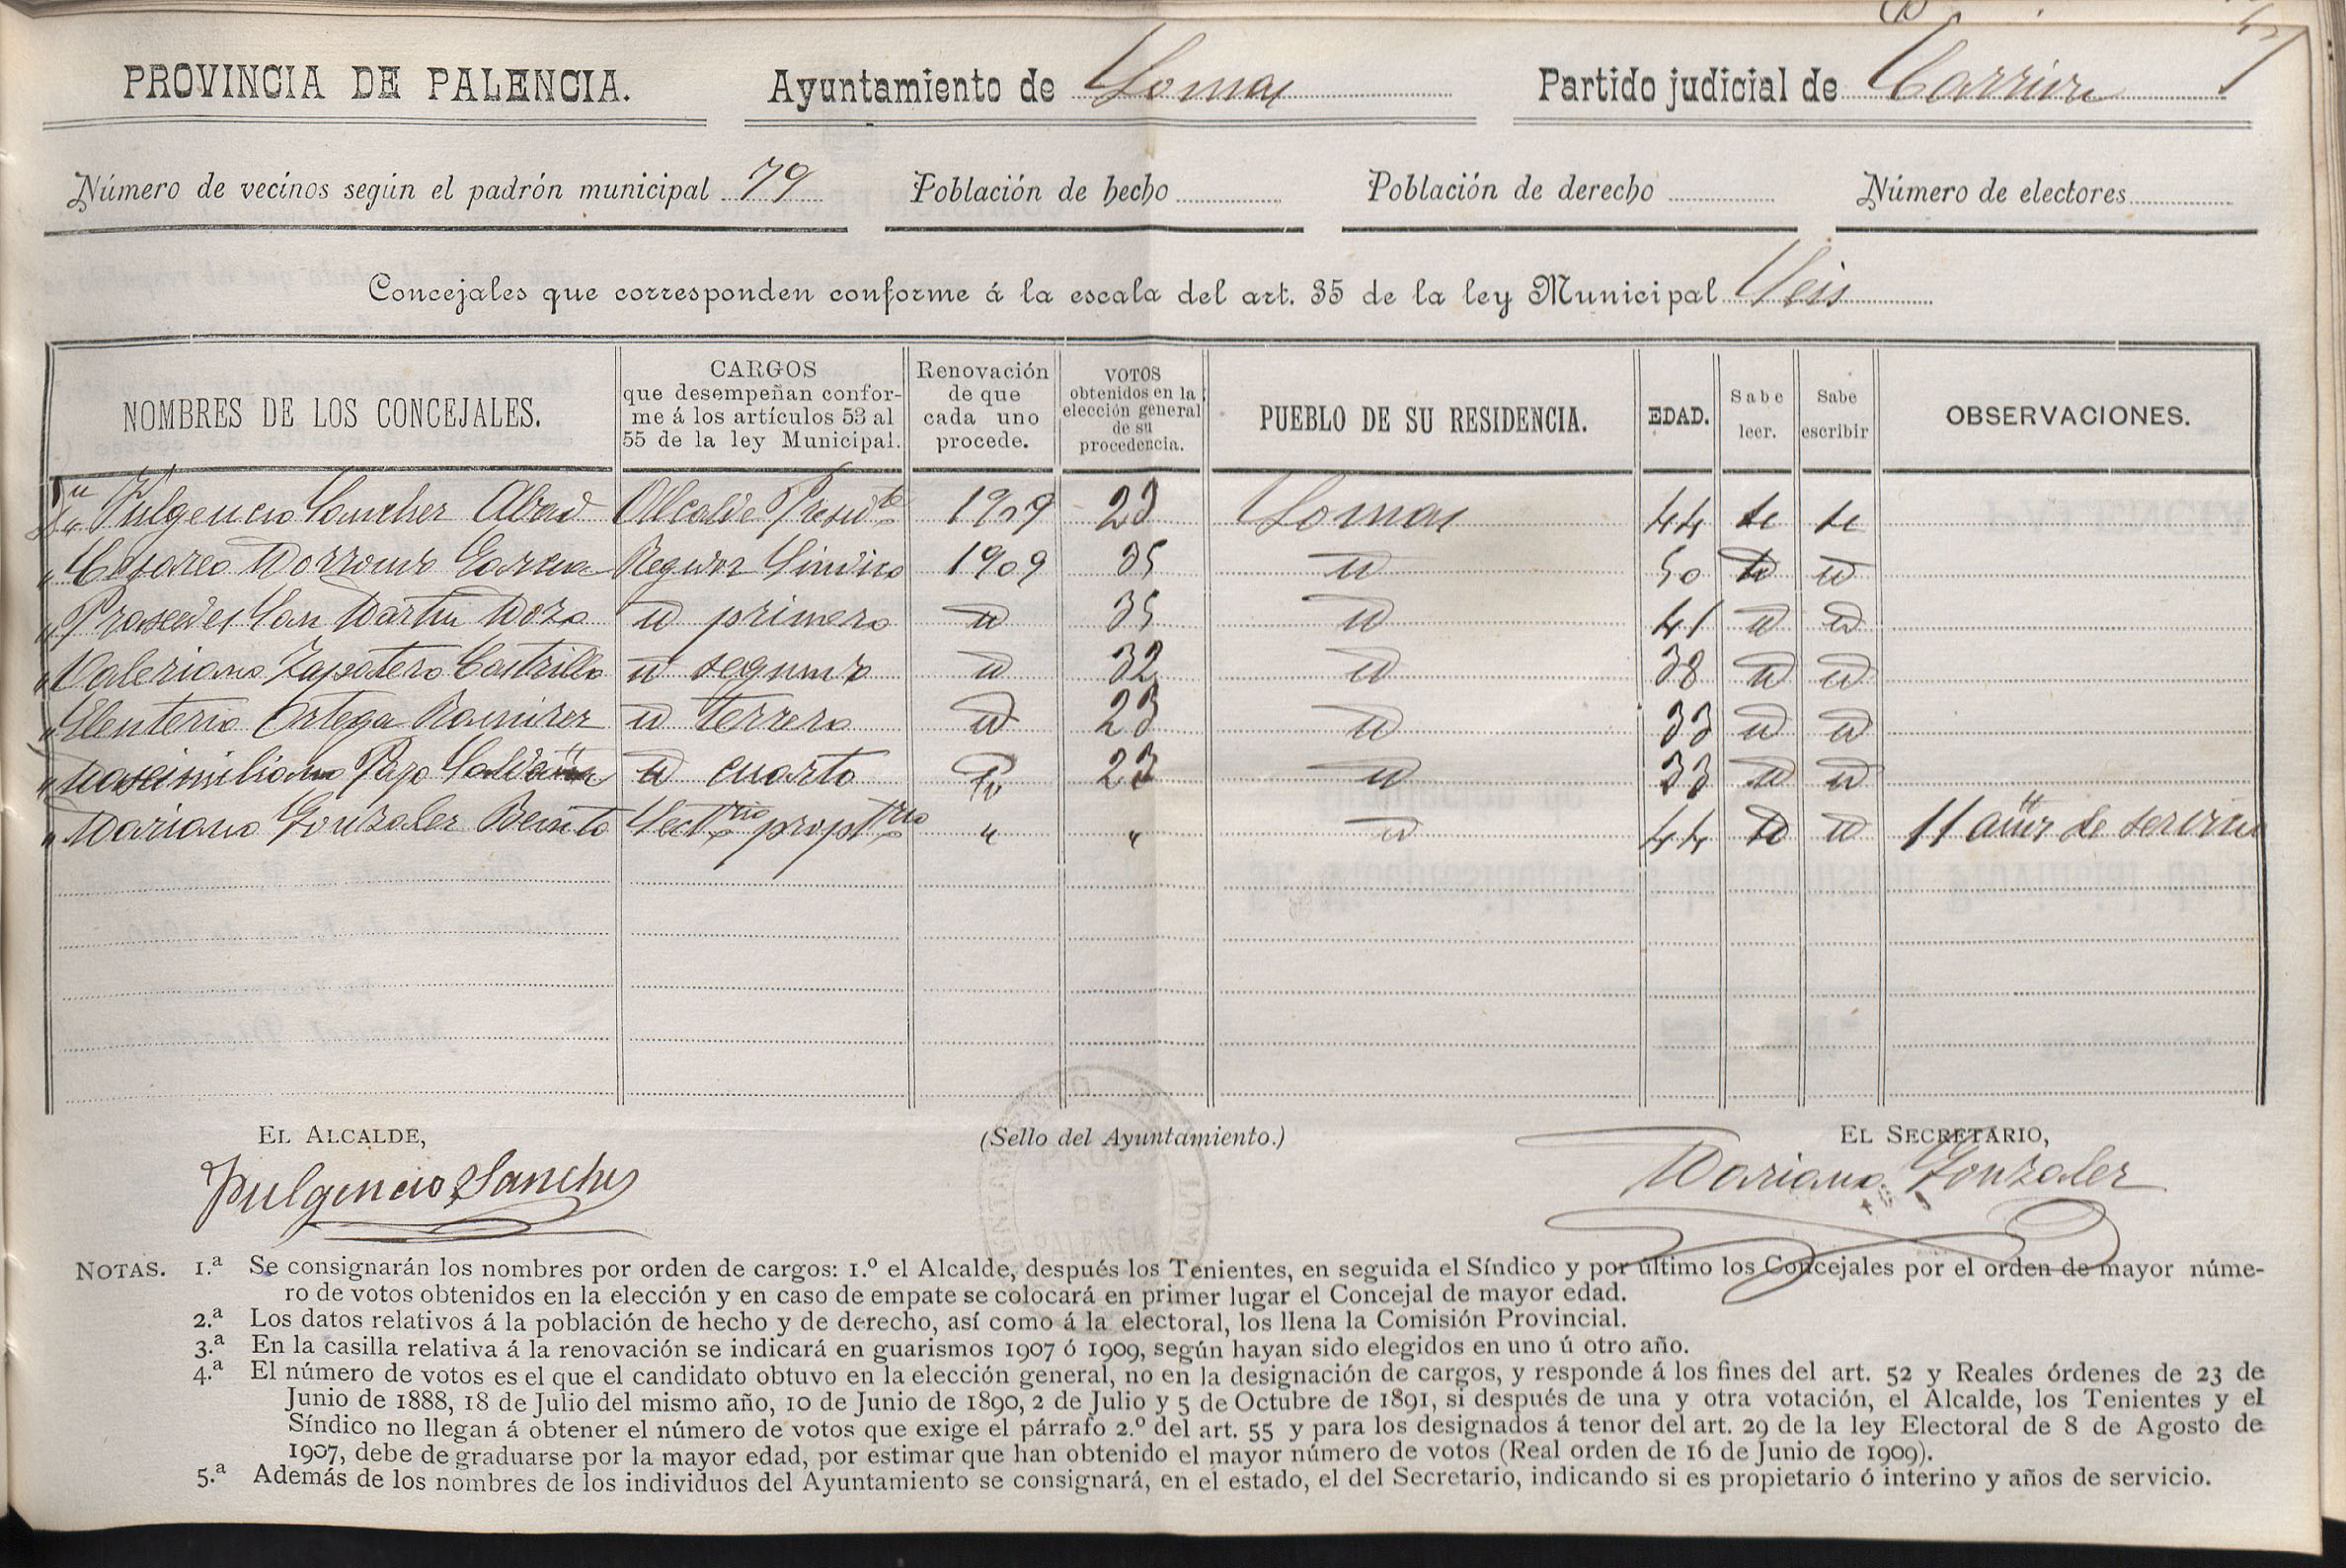 PROVINCIA DE PALENCIA. Ayuntamiento de Lomas Partido judicial de Carrion
Número de vecinos según el padrón municipal 79 Población de hecho Población de derecho Número de electores
Concejales que corresponden conforme á la escala del art. 35 de la ley Municipal Seis
NOMBRES DE LOS CONCEJALES. CARGOS que desempeñan confor- me á los artículos 53 al 55 de la ley Municipal. Renovación de que cada uno procede. VOTOS obtenidos en la elección general de su procedencia. PUEBLO DE SU RESIDENCIA. EDAD. Sabe leer. Sabe escribir OBSERVACIONES.
Dn Fulgencio Sanchez Abad Alcalde Presidte 1909 23 Lomas 44 si si
" Cesareo Garcia Regidor Sindico 1909 35 id 50 id id
" Praxedes San Martin id primero id 35 id 41 id id
" Valeriano Zapatero Castrillo id segundo id 32 id 38 id id
" Eleuterio Ortega Ramirez id tercero id 23 id 33 id id
" Maximiliano id cuarto id 23 id 33 id id
" Mariano Gonzalez Benito Sectrio proptrio " " id 44 id id 11 años de servicio
EL ALCALDE, (Sello del Ayuntamiento.) EL SECRETARIO,
Fulgencio Sanchez Mariano Gonzalez
PALENCIA
NOTAS. 1.ª Se consignarán los nombres por orden de cargos: 1.º el Alcalde, después los Tenientes, en seguida el Síndico y por último los Concejales por el orden de mayor núme-
ro de votos obtenidos en la elección y en caso de empate se colocará en primer lugar el Concejal de mayor edad.
2.ª Los datos relativos á la población de hecho y de derecho, así como á la electoral, los llena la Comisión Provincial.
3.ª En la casilla relativa á la renovación se indicará en guarismos 1907 ó 1909, según hayan sido elegidos en uno ú otro año.
4.ª El número de votos es el que el candidato obtuvo en la elección general, no en la designación de cargos, y responde á los fines del art. 52 y Reales órdenes de 23 de
Junio de 1888, 18 de Julio del mismo año, 10 de Junio de 1890, 2 de Julio y 5 de Octubre de 1891, si después de una y otra votación, el Alcalde, los Tenientes y el
Síndico no llegan á obtener el número de votos que exige el párrafo 2.º del art. 55 y para los designados á tenor del art. 29 de la ley Electoral de 8 de Agosto de
1907, debe de graduarse por la mayor edad, por estimar que han obtenido el mayor número de votos (Real orden de 16 de Junio de 1909).
5.ª Además de los nombres de los individuos del Ayuntamiento se consignará, en el estado, el del Secretario, indicando si es propietario ó interino y años de servicio.